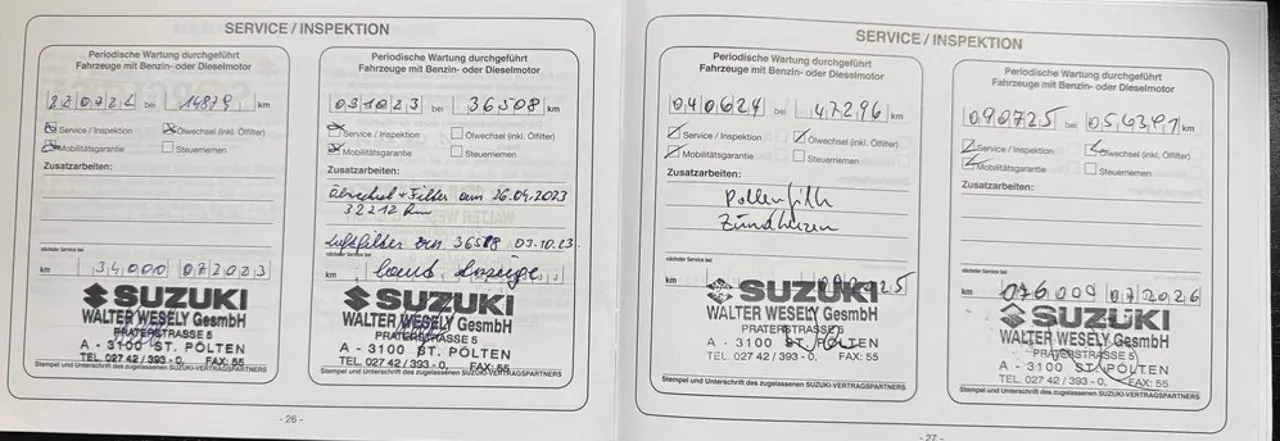 SERVICE / INSPEKTION
Periodische Wartung durchgeführt
Fahrzeuge mit Benzin- oder Dieselmotor
220722 bei 14879 km
Service / Inspektion
Ölwechsel (inkl. Ölfilter)
Mobilitätsgarantie
Steuerriemen
Zusatzarbeiten:
nächster Service bei
km 34000 072023
SUZUKI
WALTER WESELY GesmbH
PRATERSTRASSE 5
A - 3100 ST. PÖLTEN
TEL. 027 42 / 393 - 0, FAX: 55
Stempel und Unterschrift des zugelassenen SUZUKI-VERTRAGSPARTNERS
Periodische Wartung durchgeführt
Fahrzeuge mit Benzin- oder Dieselmotor
031023 bei 36508 km
Service / Inspektion
Ölwechsel (inkl. Ölfilter)
Mobilitätsgarantie
Steuerriemen
Zusatzarbeiten:
Ölwechsel + Filter am 26.04.2023
32212 km
Luftfilter 03.10.23
nächster Service bei
km laut Anzeige
SUZUKI
WALTER WESELY GesmbH
PRATERSTRASSE 5
A - 3100 ST. PÖLTEN
TEL. 027 42 / 393 - 0, FAX: 55
Stempel und Unterschrift des zugelassenen SUZUKI-VERTRAGSPARTNERS
- 26 -
SERVICE / INSPEKTION
Periodische Wartung durchgeführt
Fahrzeuge mit Benzin- oder Dieselmotor
040624 bei 47296 km
Service / Inspektion
Ölwechsel (inkl. Ölfilter)
Mobilitätsgarantie
Steuerriemen
Zusatzarbeiten:
Pollenfilt
Zündkerzen
nächster Service bei
km
SUZUKI
WALTER WESELY GesmbH
PRATERSTRASSE 5
A - 3100 ST. PÖLTEN
TEL. 027 42 / 393 - 0, FAX: 55
Stempel und Unterschrift des zugelassenen SUZUKI-VERTRAGSPARTNERS
Periodische Wartung durchgeführt
Fahrzeuge mit Benzin- oder Dieselmotor
090725 bei km
Service / Inspektion
Ölwechsel (inkl. Ölfilter)
Mobilitätsgarantie
Steuerriemen
Zusatzarbeiten:
nächster Service bei
km 076000 072026
SUZUKI
WALTER WESELY GesmbH
PRATERSTRASSE 5
A - 3100 ST. PÖLTEN
TEL. 027 42 / 393 - 0, FAX: 55
Stempel und Unterschrift des zugelassenen SUZUKI-VERTRAGSPARTNERS
- 27 -